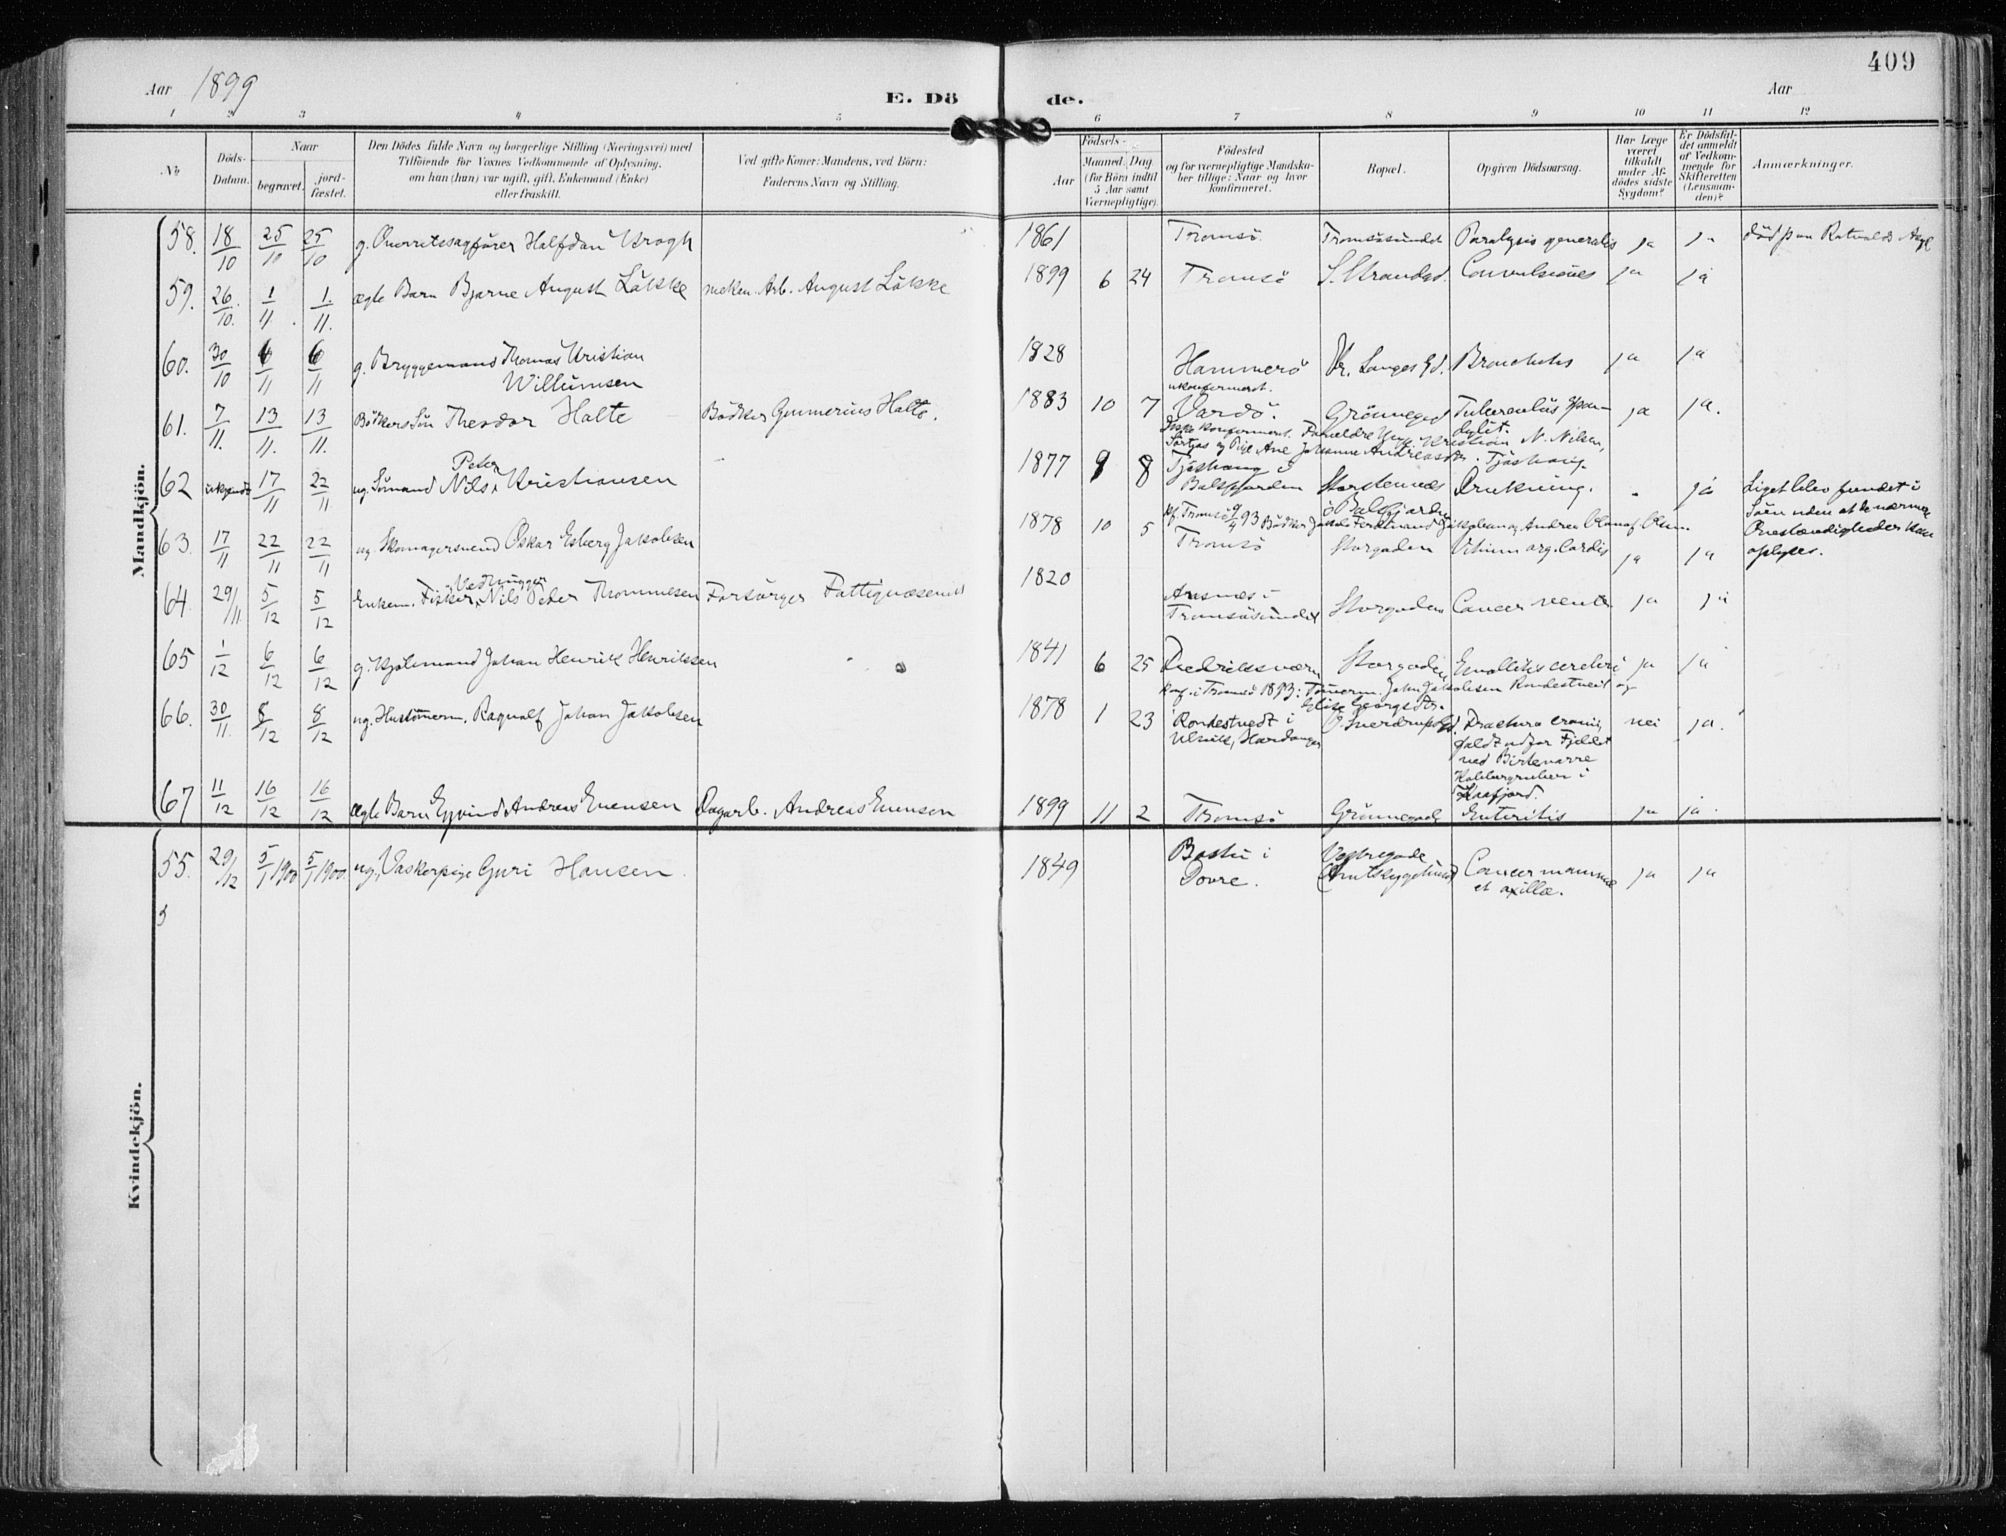 409
Aar 1899
E. Dö de.
Aar
1 2 3 4 5 6 7 8 9 10 11 12
No
Döds-Datum.
Naar
begravet.
jord-fæstet.
Den Dödes fulde Navn og borgerlige Stilling (Næringsvei) med
Tilföiende for Voxnes Vedkommende af Oplysning,
om han (hun) var ugift, gift, Enkemand (Enke)
eller fraskilt.
Ved gifte Koner: Mandens, ved Börn:
Faderens Navn og Stilling.
Födsels-
Aar
Maaned. Dag
(for Börn indtil
5 Aar samt
Værnepligtige).
Födested
og for værnepligtige Mandska-
ber tillige: Naar og hvor
konfirmeret.
Bopæl.
Opgiven Dödsaarsag.
Har Læge
været
tilkaldt
under Af-
dödes sidste
Sygdom?
Er Dödsfal-
det anmeldt
af Vedkom-
mende for
Skifteretten
(Lensman-
den)?
Anmærkninger.
Mandkjön.
58. 18/10 25/10 25/10 g. Overretssagförer Halfdan Krogh 1861 Tromsö Tromsösundet Paralysis generalis ja ja död paa Asyl
59. 26/10. 1/11. 1/11. ægte Barn Bjarne August Lökke mekan. Arb. August Lökke 1899 6 24 Tromsö S. Strandgd. Convulsiones ja ja
60. 30/10 6/11 6/11 g. Bryggemand Thomas Kristian
Willumsen 1828 Hammerö Fr. Langes Gd. Bronchitis ja ja
61. 7/11. 13/11. 13/11. Bödkers Sön Theodor Holte Bödker Gunnerius Holte. ukonfirmert. 1883 10 7 Vardö. Grönnegd Tuberculös Spon-
dylit. ja ja.
Ikke konfirmert. Forældre Ungk. Kristian N. Nilsen,
og Pige Ane Johanne Andreasdtr. Tjöshaug.
62 ukjendt 17/11 22/11 ug. Sömand Nils Peter Kristiansen 1877 9 8 Tjöshaug i
Balsfjorden Storstennæs
i Balsfjorden Drukning. - ja Liget blev fundet i
Söen uden at de nærmere
Omstændigheder kan
oplyses.
kf. Tromsö 93 Bödker Jakob Ferdinand Jakobsen og Andrea
63. 17/11 22/11 22/11 ug. Skomagersvend Oskar Esberg Jakobsen 1878 10 5 Tromsö Storgaden Vitium org. Cordis ja ja
64. 29/11 5/12 5/12 Enkem. Fisker, Vedhugger Nils Peder Thommesen Forsörges Fattigvæsenet 1820 i
Tromsösundet Storgaden Cancer ventr. ja ja
65 1/12 6/12 6/12 g. Johan Henrik Henriksen 1841 6 25 Fredriksværn Storgaden Emollitis cerebri ja ja
Konf. i Tromsö 1893: Tömerm. John Jakobsen Rondestvedt og
Elise Georgsdtr.
66. 30/11. 8/12 8/12 ug. Hustömerm. Ragvald Johan Jakobsen 1878 1 23 Rondestvedt i
Ulvik, Hardanger J. Sverdrupsgd. Fractura cranii,
faldt udfor Fjeldet
ved Birtevarre
Kobbergruber i
Kaafjord. nei ja.
67 11/12 16/12 16/12 ægte Barn Eyvind Andreas Evensen Dagarb. Andreas Evensen 1899 11 2 Tromsö Grönnegade Enteritis ja ja.
Kvindekjön.
55. 29/12 5/1 1900 5/1 1900. ug. Vaskerpige Guri Hansen. 1849 i
Dovre. Vestregade
(Amtssygehuset) Cancer mammæ
et axillæ. ja ja
5